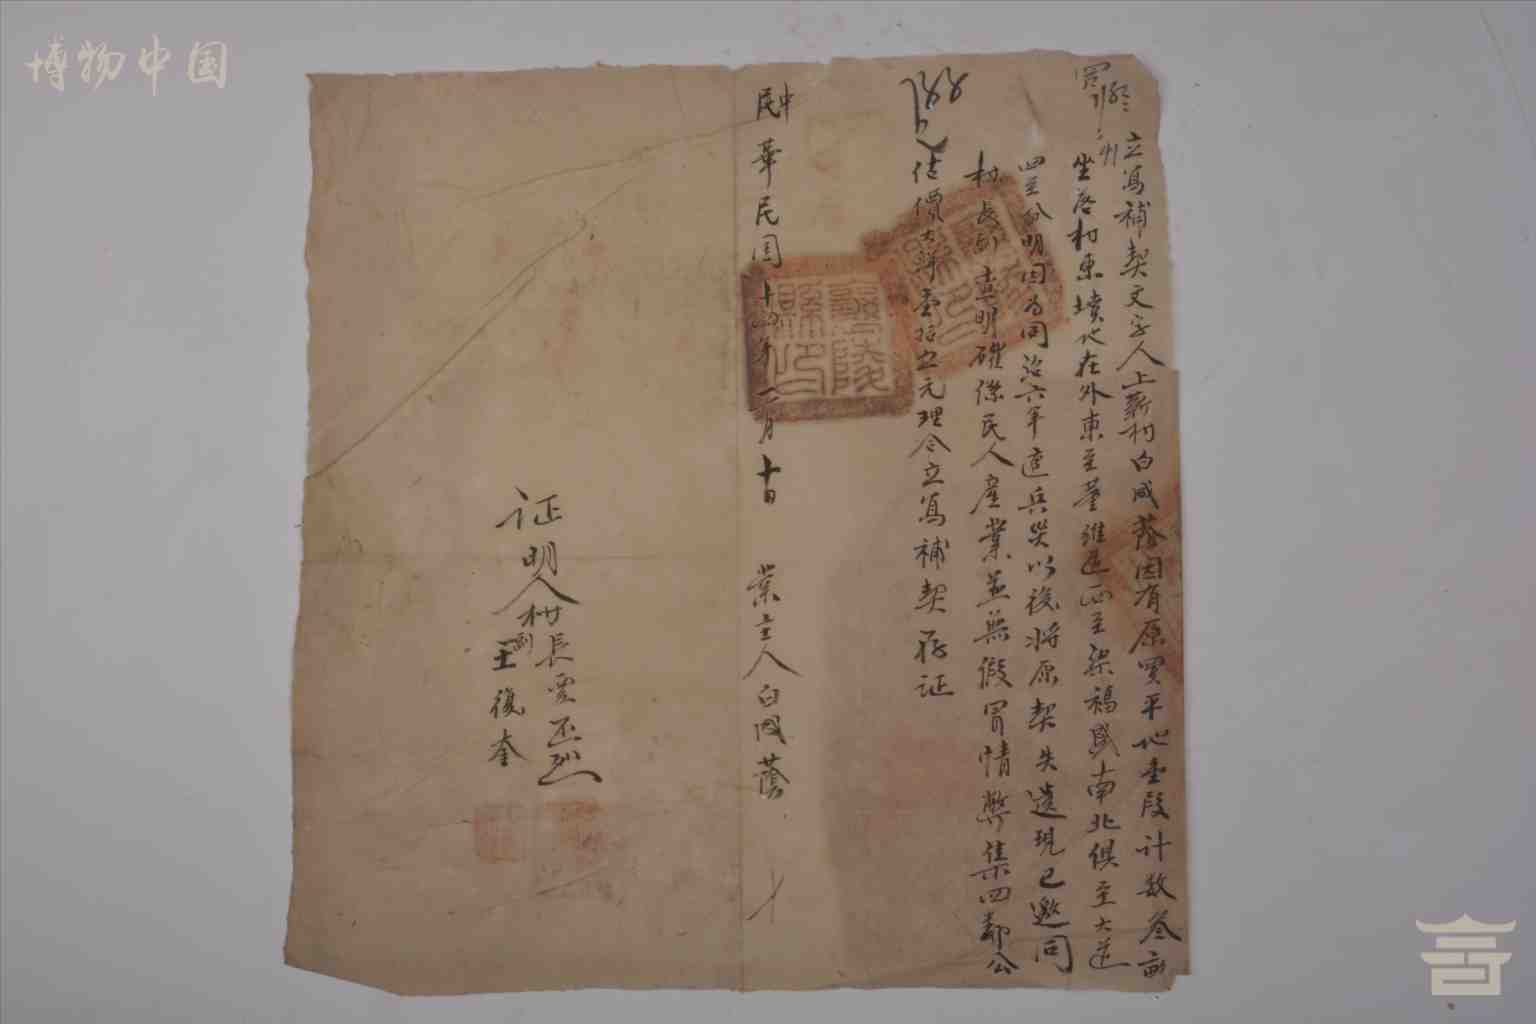 博物中国
立写補契文字人上薪村白成蔭因有原買平地壹段計数叁畝
坐落村東墳地在外東至董維邉西至梁福盛南北俱至大道
四至分明因为同治六年遭兵災以後将原契失遗現已邀同
村長副查明確係民人産業並無假冒情弊集四鄰公
估價大洋壹拾五元理合立写補契存证
中華民國十四年一月十日 業主人白成蔭
证明人村長賈丕烈
副王復奎